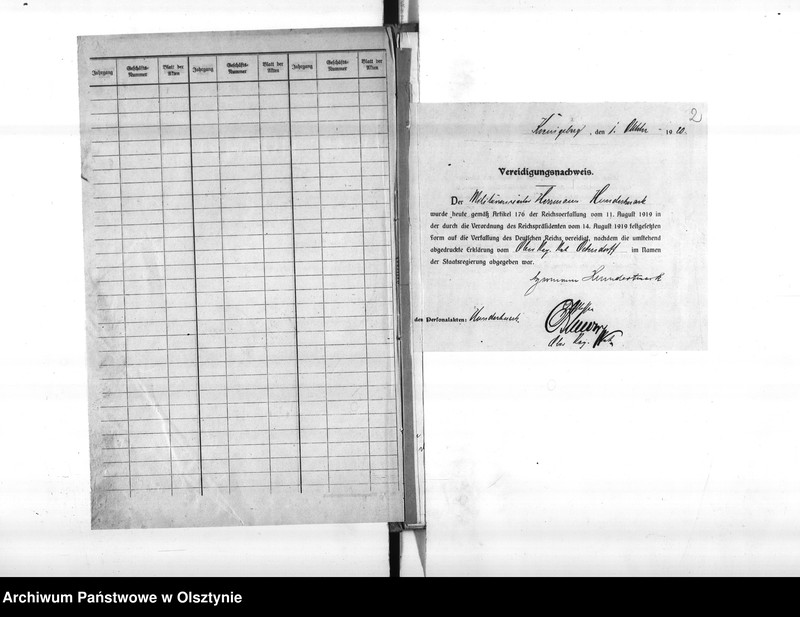 Jahrgang Geschäfts-Nummer Blatt der Akten Jahrgang Geschäfts-Nummer Blatt der Akten Jahrgang Geschäfts-Nummer Blatt der Akten
2
Königsberg, den 1. Oktober 1920.
Vereidigungsnachweis.
Der Militäranwärter Hermann Hundertmark
wurde heute gemäß Artikel 176 der Reichsverfassung vom 11. August 1919 in
der durch die Verordnung des Reichspräsidenten vom 14. August 1919 festgesetzten
Form auf die Verfassung des Deutschen Reichs vereidigt, nachdem die umstehend
abgedruckte Erklärung vom Ober Reg. Rat im Namen
der Staatsregierung abgegeben war.
Hermann Hundertmark
des Personalakten: Hundertmark
Ober Reg. Rat.
Archiwum Państwowe w Olsztynie